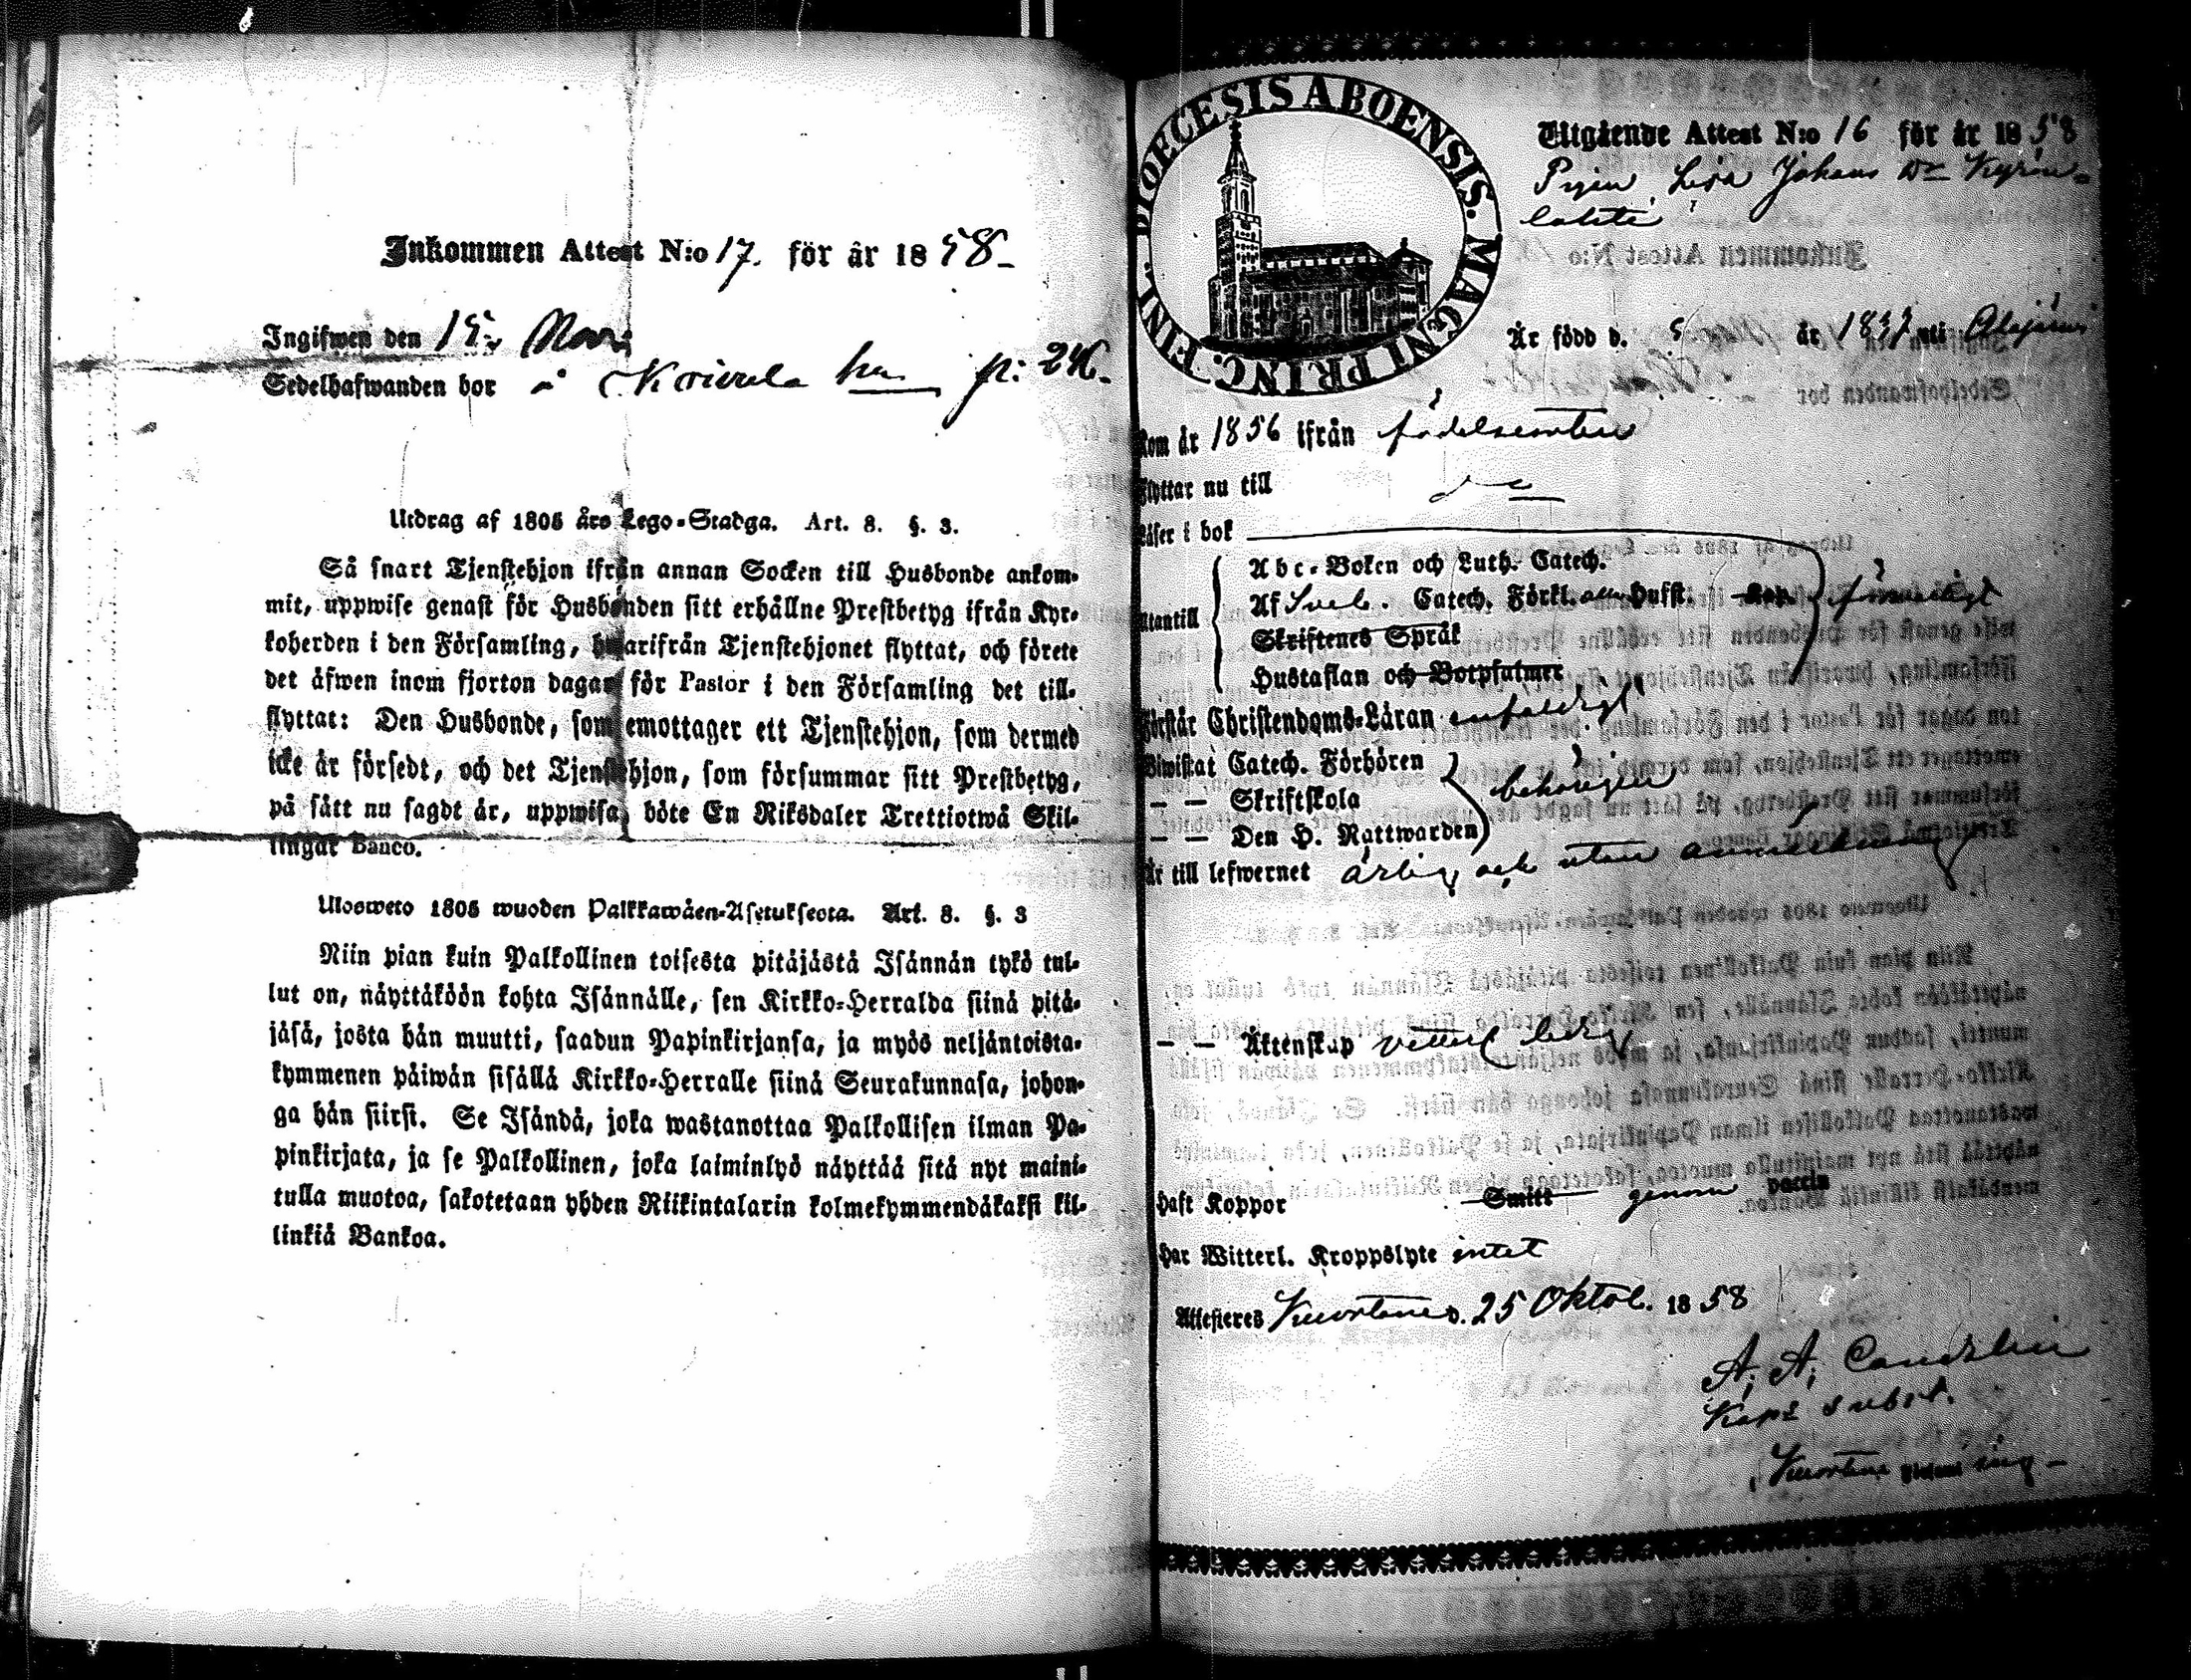 Inkommen Attest N:o 17. för år 1858
Ingifwen den 15 Nov:
Sedelhafwanden bor å p: 246.
Utdrag af 1805 års Lego-Stadga. Art. 8. §. 3.
Så snart Tjenstehjon ifrån annan Socken till Husbonde ankom-
mit, uppwise genast för Husbonden sitt erhållne Prestbetyg ifrån Kyr-
koherden i den Församling, hwarifrån Tjenstehjonet flyttat, och förete
det äfwen inom fjorton dagar för Pastor i den Församling det till-
flyttat: Den Husbonde, som emottager ett Tjenstehjon, som dermed
icke är försedt, och det Tjenstehjon, som försummar sitt Prestbetyg,
på sätt nu sagdt är, uppwisa, böte En Riksdaler Trettiotwå Skil-
lingar Banco.
Ulosweto 1805 wuoden Palkkawäen-Asetuksesta. Art. 8. §. 3
Niin pian kuin Palkollinen toisesta pitäjästä Isännän tykö tul-
lut on, näyttäköön kohta Isännälle, sen Kirkko-Herralda siinä pitä-
jäsä, josta hän muutti, saadun Papinkirjansa, ja myös neljäntoista-
kymmenen päiwän sisällä Kirkko-Herralle siinä Seurakunnasa, johon-
ga hän siirst. Se Isändä, joka wastanottaa Palkollisen ilman Pa-
pinkirjata, ja se Palkollinen, joka laiminlyö näyttää sitä nyt maini-
tulla muotoa, sakotetaan yhden Riikintalarin kolmekymmendäkaksi kil-
linkiä Bankoa.
DIOECESIS ABOENSIS. MAGNI PRINC. FINL.
Utgående Attest N:o 16 för år 1858
Pigan Lisa Johans Dr Kyrön-
lahti
Är född d. 5 år 1837 uti Alajärvi
Kom år 1856 ifrån födelseorten
Flyttar nu till do
Läser i bok
Abc-Boken och Luth. Catech.
Utantill Af Sveb. Catech. Förkl. Hufst. Kap. försvarligt
Skriftenes Språk
Hustaflan och Botpsalmer
Förstår Christendoms-Läran enfaldigt
Biwistat Catech. Förhören
— — Skriftskola behörigen
— — Den H. Nattwarden
Är till lefwernet ärlig och utan anmärkning
— — Äktenskap veterl. ledig
Haft Koppor Smitt genom vaccin
Har Witterl. Kroppslyte intet
Attesteras Kuortane d. 25 Oktob. 1858
A. A.
Kaps subst.
Kuortane